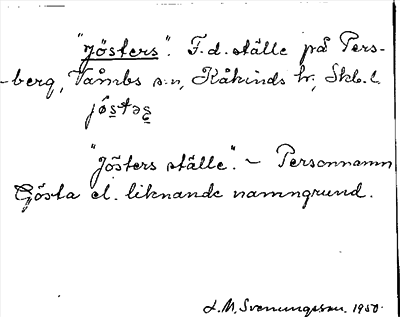 "Jösters". F.d. ställe på Pers-
-berg, Våmbs s:n, Kåkinds hr, Skb. l.
"Jösters ställe". – Personnamn
Gösta el. liknande namngrund.
L.M. Svenungsson. 1950.